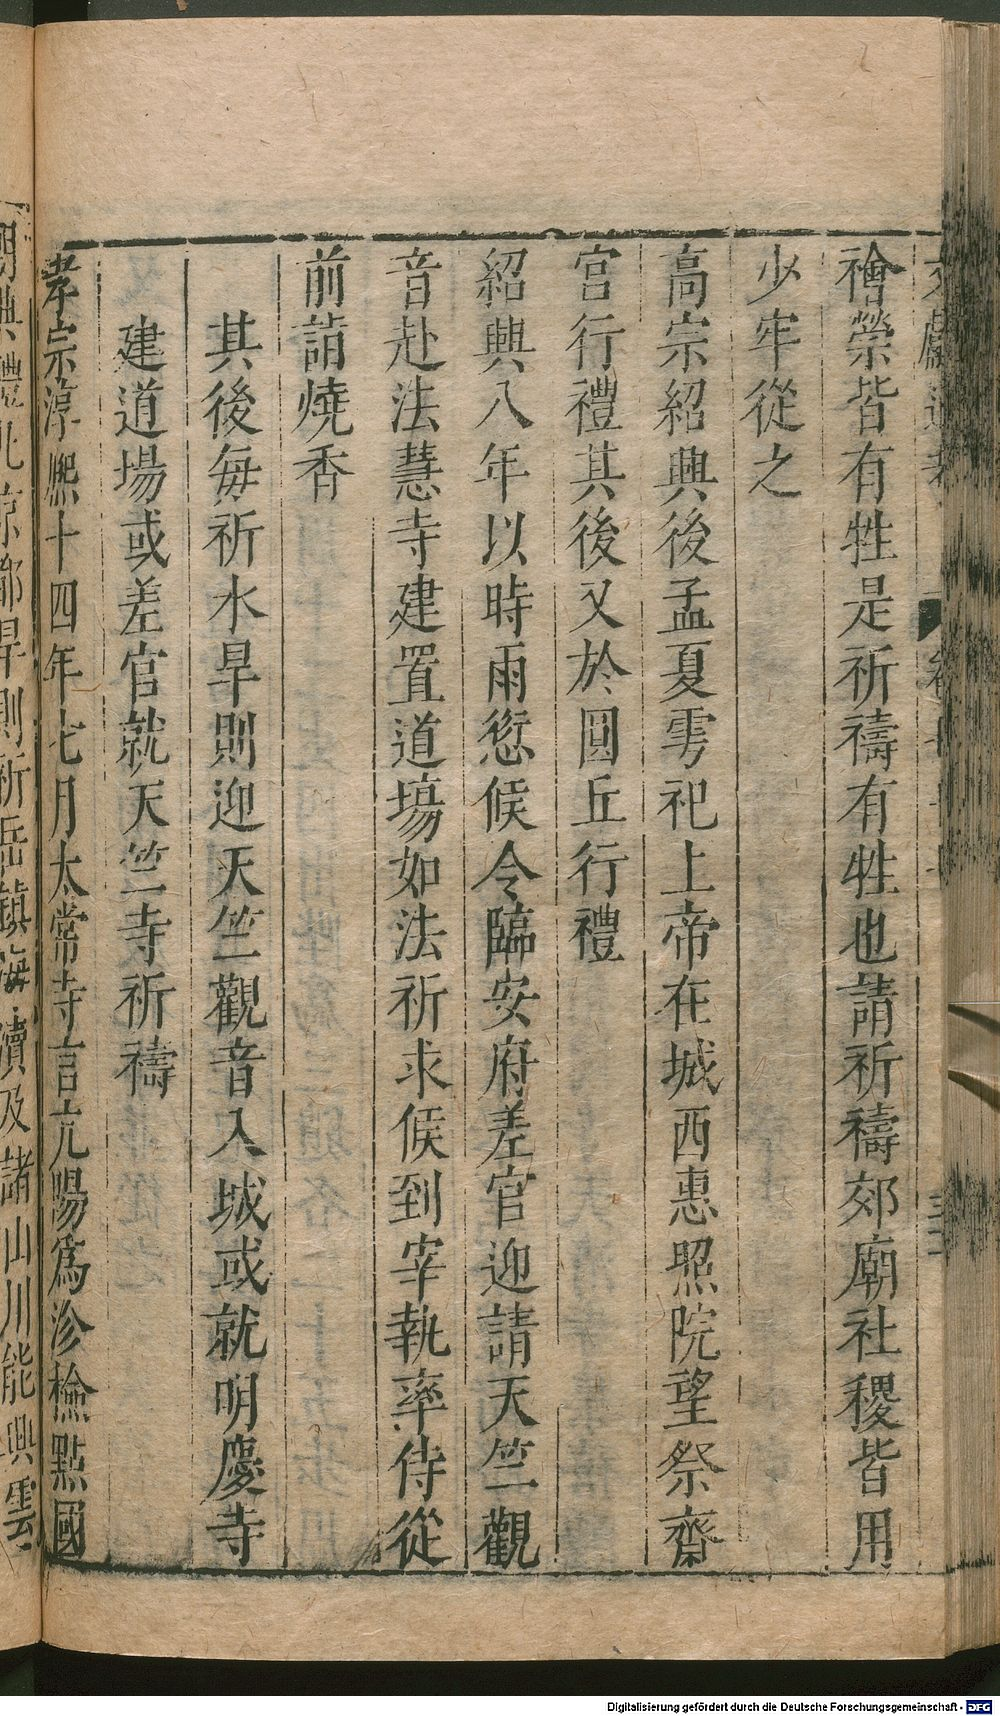 禬禜皆有牲是祈禱有牲也請祈禱郊廟社稷皆用
少牢從之
高宗紹興後孟夏雩祀上帝在城西惠照院望祭齋
宮行禮其後又於圓丘行禮
紹興八年以時雨愆候令臨安府差官迎請天竺觀
音赴法慧寺建置道場如法祈求候到宰執率侍從
前詣燒香
其後每祈水旱則迎天竺觀音入城或就明慶寺
建道場或差官就天竺寺祈禱
孝宗淳熙十四年七月太常寺言亢陽為沴檢點國
朝典禮凡京都旱則祈岳鎮海瀆及諸山川能興雲
Digitalisierung gefördert durch die Deutsche Forschungsgemeinschaft - DFG